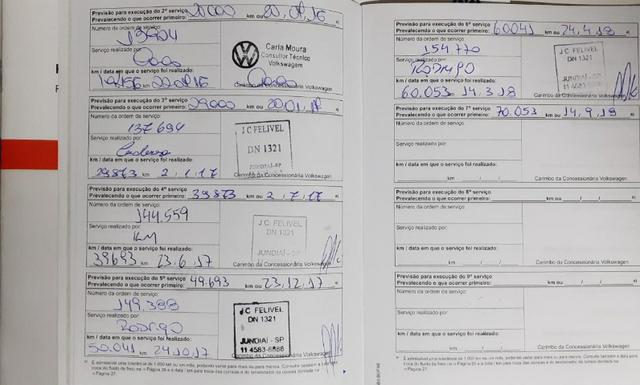 Previsão para execução do 2º serviço
Prevalecendo o que ocorrer primeiro: 20000 km ou 20.08.16
Número da ordem de serviço:
Serviço realizado por:
km / data em que o serviço foi realizado:
Carla Moura
Consultor Técnico
Volkswagen
Carimbo da Concessionária Volkswagen
Previsão para execução do 3º serviço
Prevalecendo o que ocorrer primeiro: 29000 km ou
Número da ordem de serviço:
137694
Serviço realizado por:
km / data em que o serviço foi realizado:
29873 2.1.17
J C FELIVEL
DN 1321
JUNDIAÍ-SP
Carimbo da Concessionária Volkswagen
Previsão para execução do 4º serviço
Prevalecendo o que ocorrer primeiro: 39873 km ou 2.7.17
Número da ordem de serviço:
144.559
Serviço realizado por:
km / data em que o serviço foi realizado:
39693 23.6.17
J C FELIVEL
DN 1321
JUNDIAÍ - SP
Carimbo da Concessionária Volkswagen
Previsão para execução do 5º serviço
Prevalecendo o que ocorrer primeiro: 49.693 km ou 23.12.17
Número da ordem de serviço:
149.388
Serviço realizado por:
Rodrigo
km / data em que o serviço foi realizado:
50.041 24.10.17
J C FELIVEL
DN 1321
JUNDIAÍ - SP
11 4583-8686
Carimbo da Concessionária Volkswagen
Previsão para execução do 6º serviço
Prevalecendo o que ocorrer primeiro: 60041 km ou 24.4.18
Número da ordem de serviço:
154.770
Serviço realizado por:
Rodrigo
km / data em que o serviço foi realizado:
60.053 14.3.18
J C FELIVEL
DN 1321
JUNDIAÍ
Carimbo da Concessionária Volkswagen
Previsão para execução do 7º serviço
Prevalecendo o que ocorrer primeiro: 70.053 km ou 14.9.18
Número da ordem de serviço:
Serviço realizado por:
km / data em que o serviço foi realizado:
km / /
Carimbo da Concessionária Volkswagen
Previsão para execução do 8º serviço
Prevalecendo o que ocorrer primeiro: km ou / /
Número da ordem de serviço:
Serviço realizado por:
km / data em que o serviço foi realizado:
km / /
Carimbo da Concessionária Volkswagen
Previsão para execução do 9º serviço
Prevalecendo o que ocorrer primeiro: km ou / /
Número da ordem de serviço:
Serviço realizado por:
km / data em que o serviço foi realizado:
km / /
Carimbo da Concessionária Volkswagen